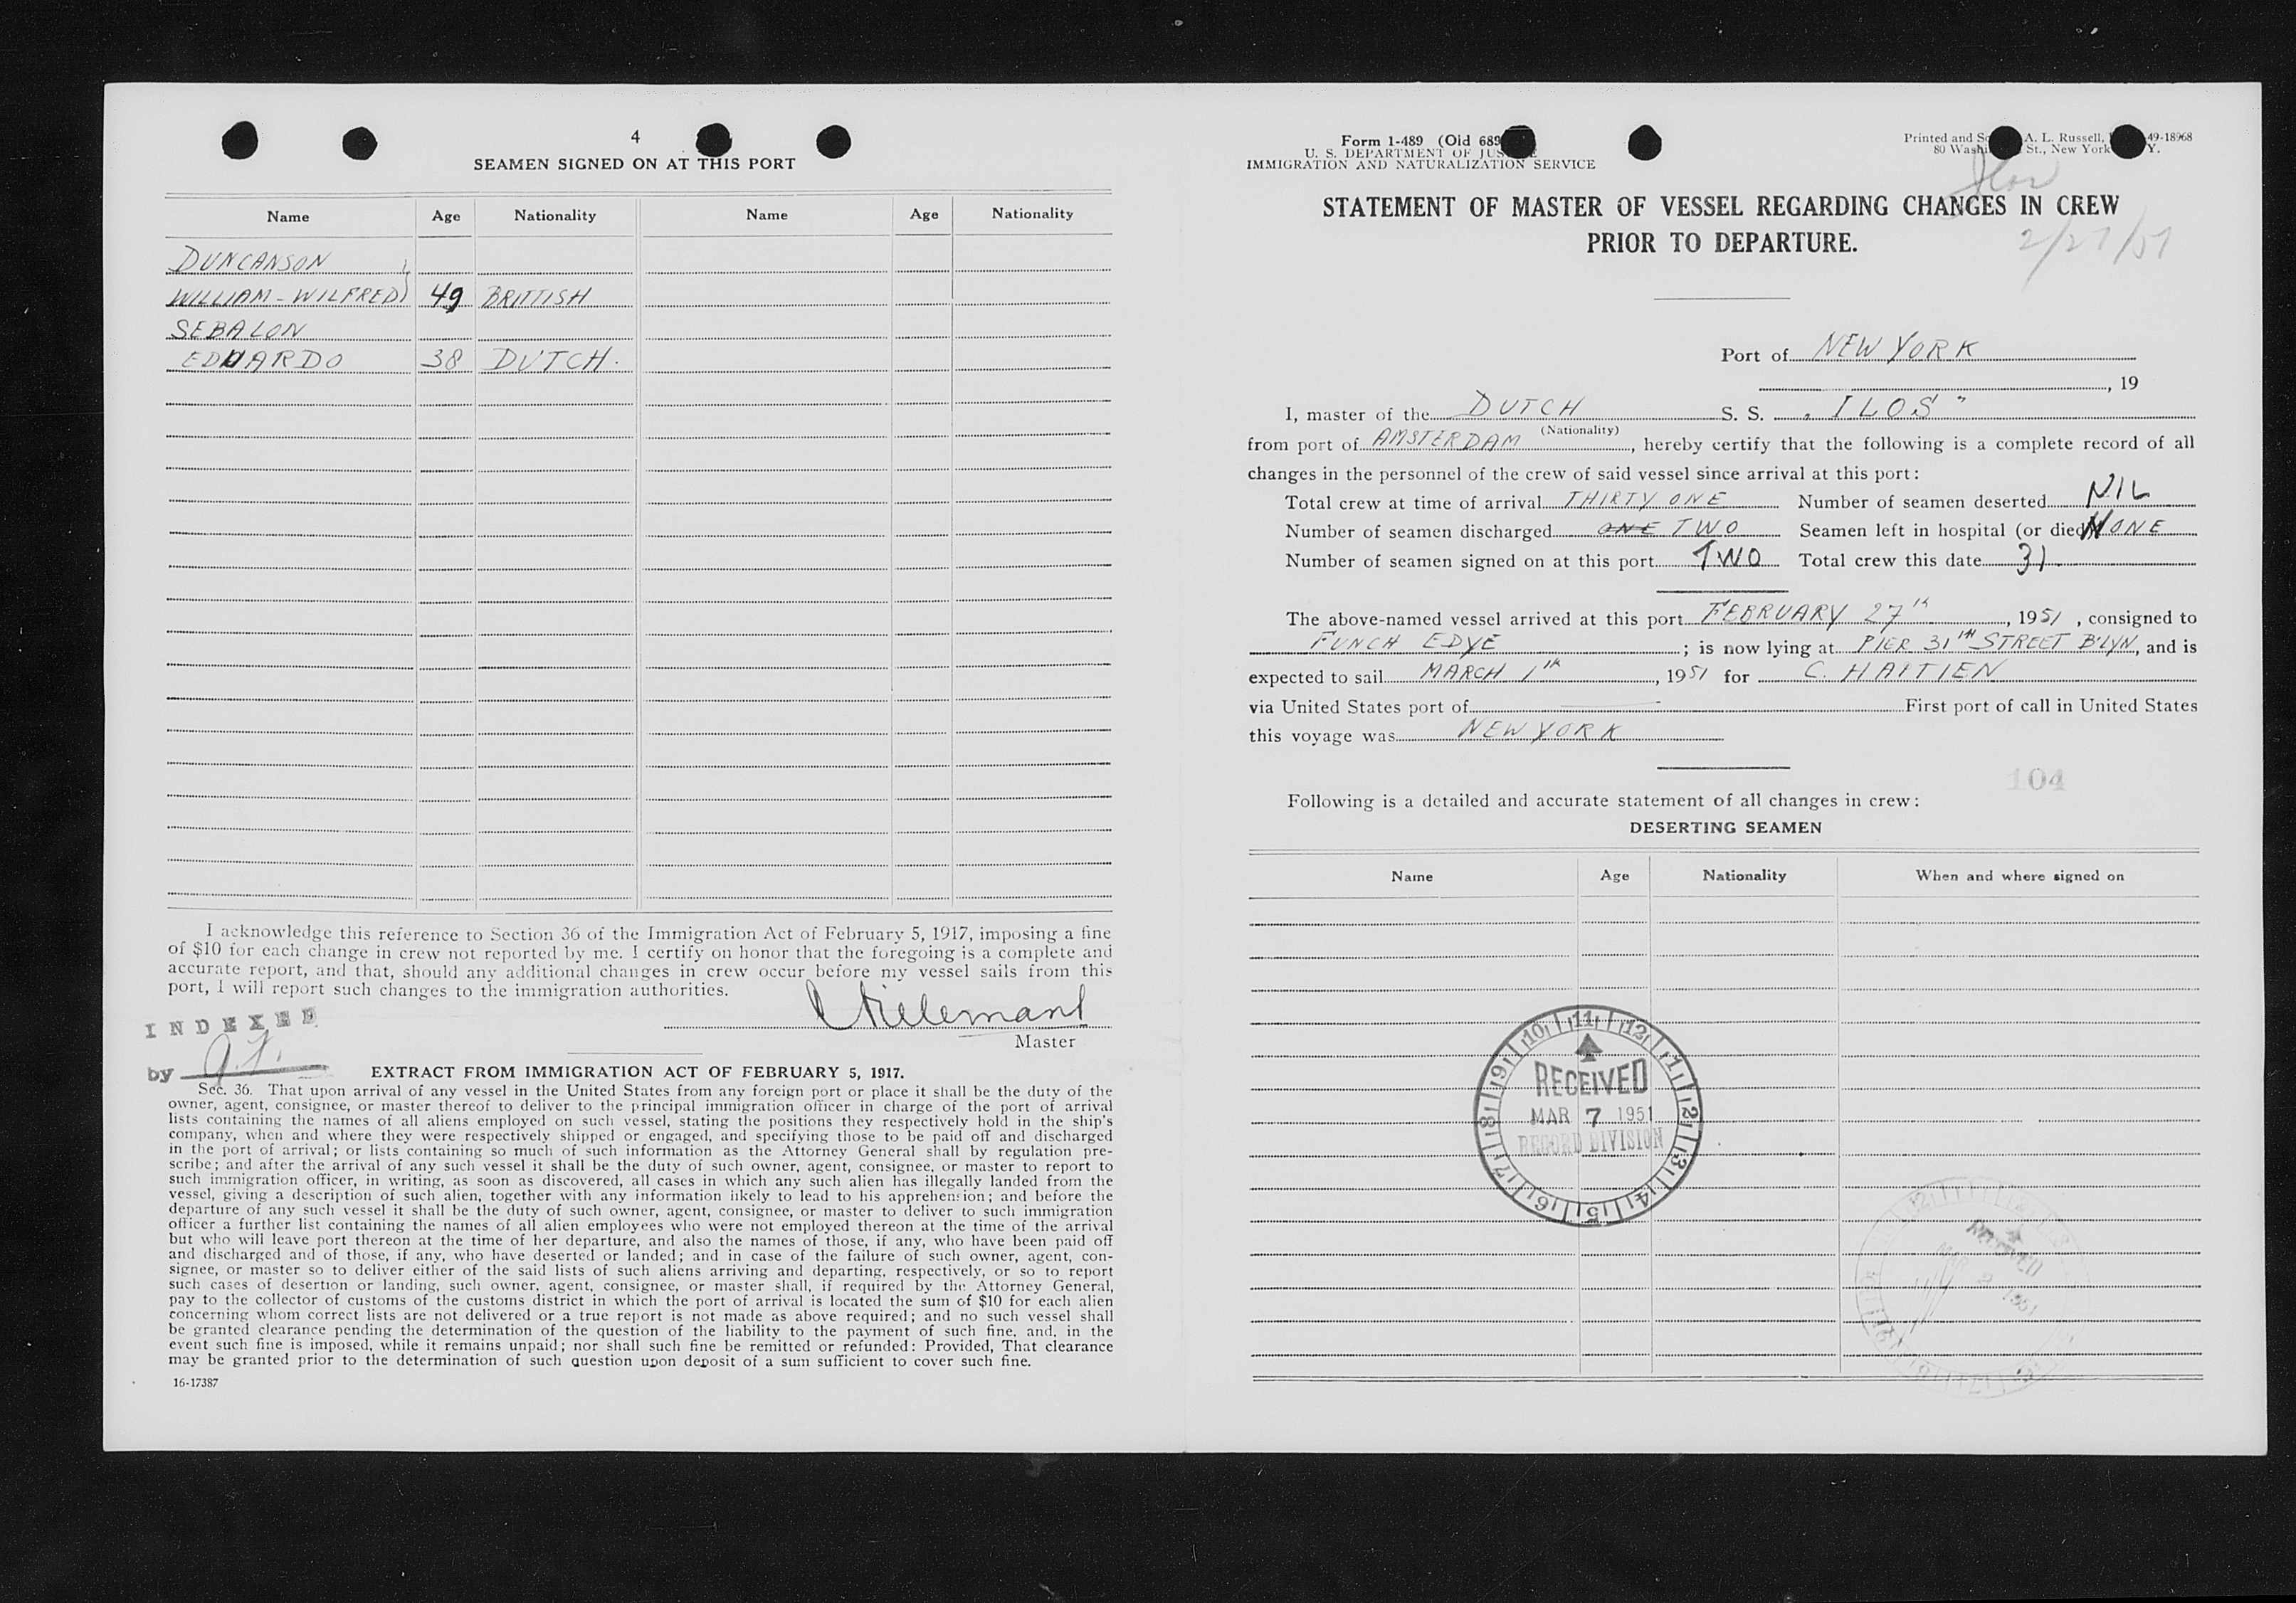 4
SEAMEN SIGNED ON AT THIS PORT
Name Age Nationality Name Age Nationality
DUNCANSON
WILLIAM-WILFRED 49 BRITTISH
SEBALON
EDUARDO 38 DUTCH.
I acknowledge this reference to Section 36 of the Immigration Act of February 5, 1917, imposing a fine
of $10 for each change in crew not reported by me. I certify on honor that the foregoing is a complete and
accurate report, and that, should any additional changes in crew occur before my vessel sails from this
port, I will report such changes to the immigration authorities.
Master
INDEXED
by
EXTRACT FROM IMMIGRATION ACT OF FEBRUARY 5, 1917.
Sec. 36. That upon arrival of any vessel in the United States from any foreign port or place it shall be the duty of the
owner, agent, consignee, or master thereof to deliver to the principal immigration officer in charge of the port of arrival
lists containing the names of all aliens employed on such vessel, stating the positions they respectively hold in the ship's
company, when and where they were respectively shipped or engaged, and specifying those to be paid off and discharged
in the port of arrival; or lists containing so much of such information as the Attorney General shall by regulation pre-
scribe; and after the arrival of any such vessel it shall be the duty of such owner, agent, consignee, or master to report to
such immigration officer, in writing, as soon as discovered, all cases in which any such alien has illegally landed from the
vessel, giving a description of such alien, together with any information likely to lead to his apprehension; and before the
departure of any such vessel it shall be the duty of such owner, agent, consignee, or master to deliver to such immigration
officer a further list containing the names of all alien employees who were not employed thereon at the time of the arrival
but who will leave port thereon at the time of her departure, and also the names of those, if any, who have been paid off
and discharged and of those, if any, who have deserted or landed; and in case of the failure of such owner, agent, con-
signee, or master so to deliver either of the said lists of such aliens arriving and departing, respectively, or so to report
such cases of desertion or landing, such owner, agent, consignee, or master shall, if required by the Attorney General,
pay to the collector of customs of the customs district in which the port of arrival is located the sum of $10 for each alien
concerning whom correct lists are not delivered or a true report is not made as above required; and no such vessel shall
be granted clearance pending the determination of the question of the liability to the payment of such fine, and, in the
event such fine is imposed, while it remains unpaid; nor shall such fine be remitted or refunded: Provided, That clearance
may be granted prior to the determination of such question upon deposit of a sum sufficient to cover such fine.
16-17387
Form 1-489 (Old 689
U. S. DEPARTMENT OF JUS
IMMIGRATION AND NATURALIZATION SERVICE
Printed and A. L. Russell, 49-18968
80 St., New York Y.
Ilos
STATEMENT OF MASTER OF VESSEL REGARDING CHANGES IN CREW
PRIOR TO DEPARTURE.
2/27/51
Port of NEW YORK
, 19
I, master of the DUTCH S. S. "ILOS"
(Nationality)
from port of AMSTERDAM, hereby certify that the following is a complete record of all
changes in the personnel of the crew of said vessel since arrival at this port:
Total crew at time of arrival THIRTY ONE Number of seamen deserted NIL
Number of seamen discharged ONE TWO Seamen left in hospital (or died) NONE
Number of seamen signed on at this port TWO Total crew this date 31
The above-named vessel arrived at this port FEBRUARY 27th, 1951, consigned to
FUNCH EDYE; is now lying at PIER 31TH STREET B'LYN, and is
expected to sail MARCH 1th, 1951 for C. HAITIEN
via United States port of First port of call in United States
this voyage was NEW YORK
104
Following is a detailed and accurate statement of all changes in crew:
DESERTING SEAMEN
Name Age Nationality When and where signed on
10 11 12 1 2 3 4 5 6 7 8 9
RECEIVED
MAR 7 1951
RECORD DIVISION
RECEIVED
MAR 2 1951